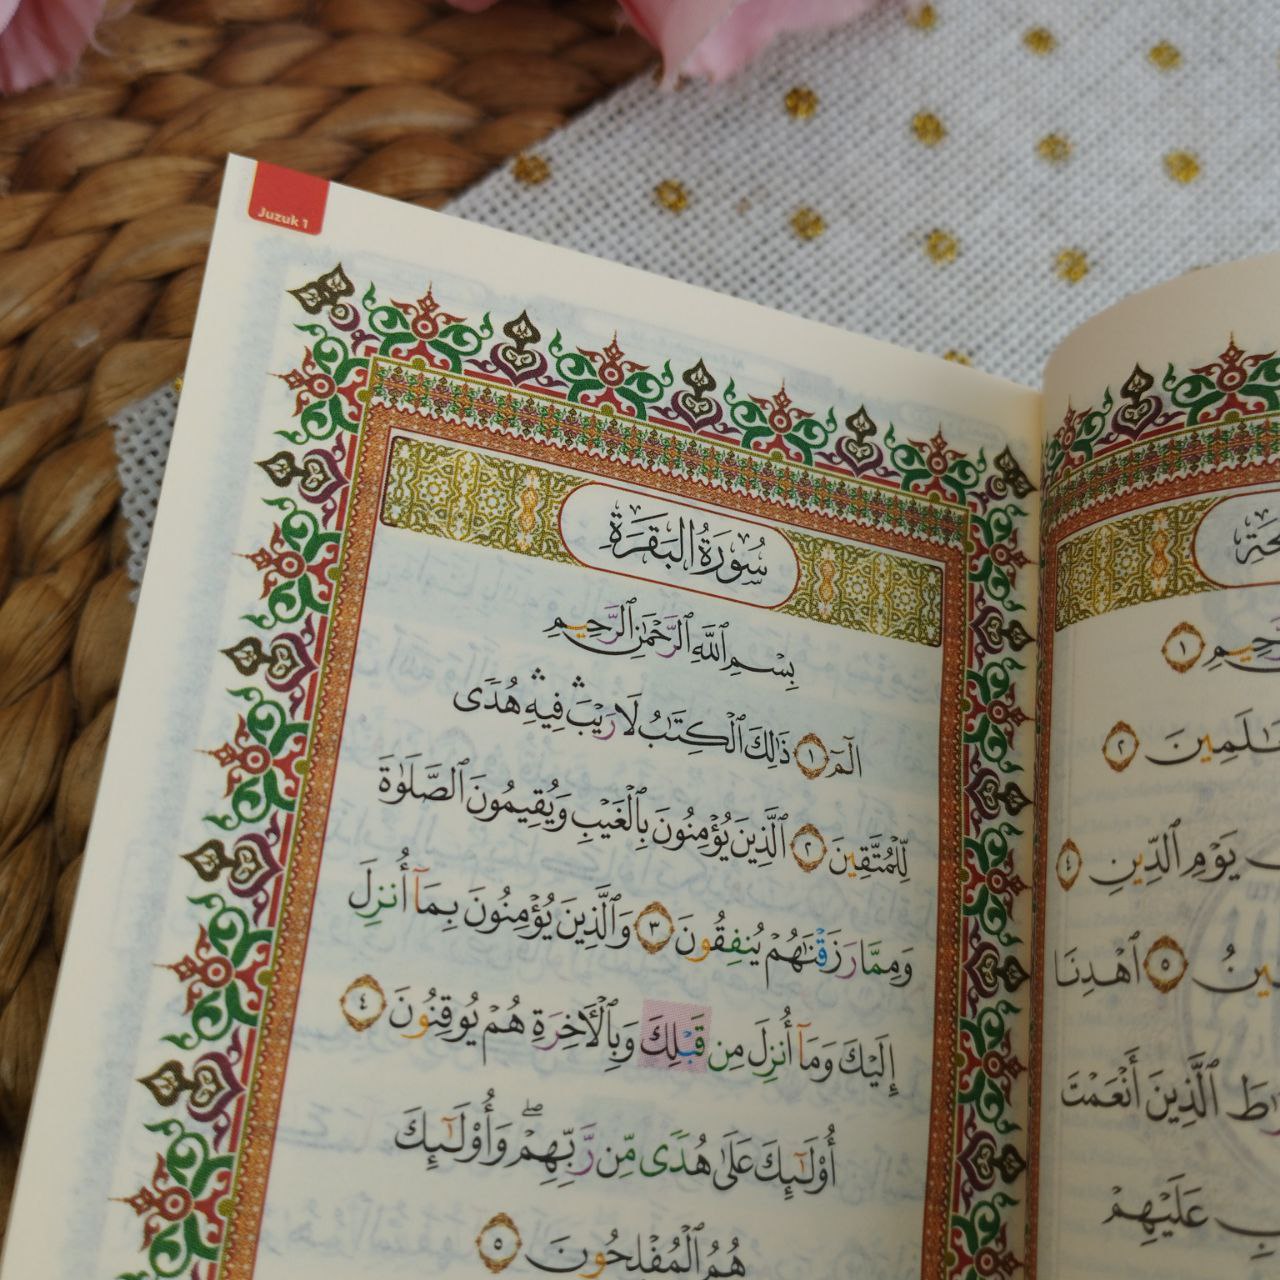 Juzuk 1
سُورَةُ الْبَقَرَةِ
بِسْمِ ٱللَّهِ ٱلرَّحْمَٰنِ ٱلرَّحِيمِ
الٓمٓ ١ ذَٰلِكَ ٱلْكِتَٰبُ لَا رَيْبَ ۛ فِيهِ ۛ هُدًى
لِّلْمُتَّقِينَ ٢ ٱلَّذِينَ يُؤْمِنُونَ بِٱلْغَيْبِ وَيُقِيمُونَ ٱلصَّلَوٰةَ
وَمِمَّا رَزَقْنَٰهُمْ يُنفِقُونَ ٣ وَٱلَّذِينَ يُؤْمِنُونَ بِمَآ أُنزِلَ
إِلَيْكَ وَمَآ أُنزِلَ مِن قَبْلِكَ وَبِٱلْأَخِرَةِ هُمْ يُوقِنُونَ ٤
أُوْلَٰٓئِكَ عَلَىٰ هُدًى مِّن رَّبِّهِمْ ۖ وَأُوْلَٰٓئِكَ
هُمُ ٱلْمُفْلِحُونَ ٥
١
٢
يَوْمِ ٱلدِّينِ ٤
٥ ٱهْدِنَا
ٱلَّذِينَ أَنْعَمْتَ
عَلَيْهِمْ